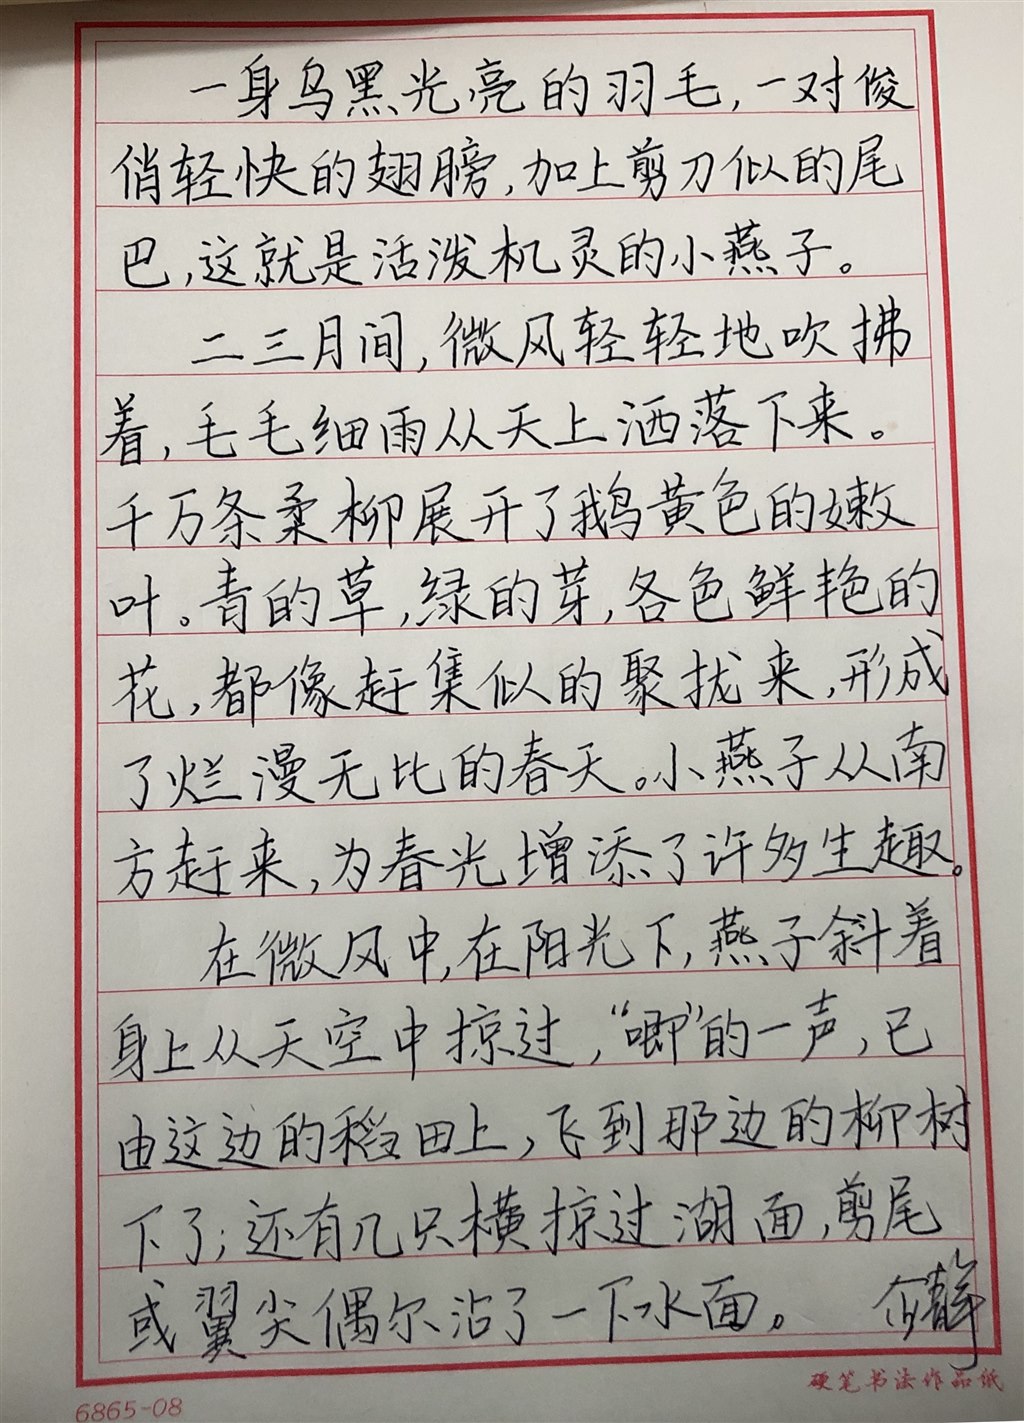 一身乌黑光亮的羽毛，一对俊
俏轻快的翅膀，加上剪刀似的尾
巴，这就是活泼机灵的小燕子。
二三月间，微风轻轻地吹拂
着，毛毛细雨从天上洒落下来。
千万条柔柳展开了鹅黄色的嫩
叶。青的草，绿的芽，各色鲜艳的
花，都像赶集似的聚拢来，形成
了烂漫无比的春天。小燕子从南
方赶来，为春光增添了许多生趣。
在微风中，在阳光下，燕子斜着
身上从天空中掠过，“唧”的一声，已
由这边的稻田上，飞到那边的柳树
下了；还有几只横掠过湖面，剪尾
或翼尖偶尔沾了一下水面。
硬笔书法作品纸
6865-08